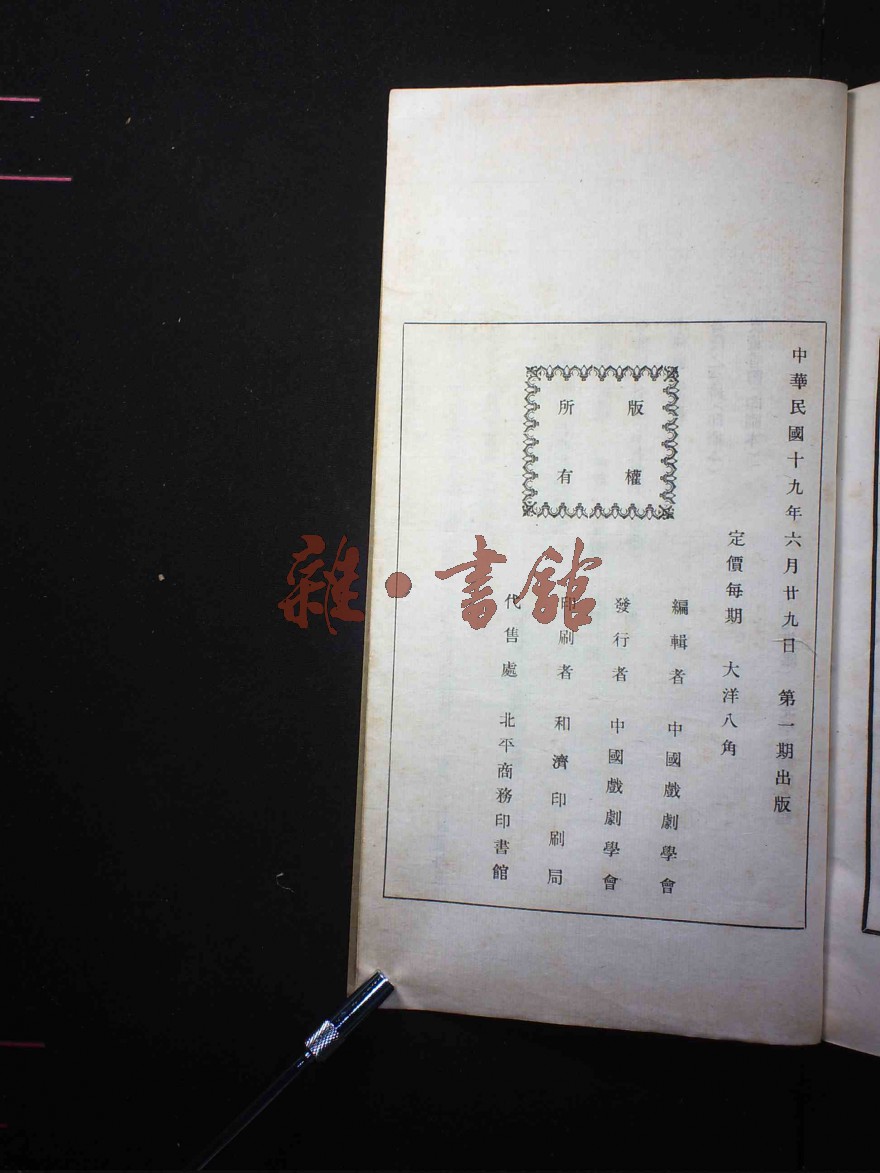 中華民國十九年六月廿九日 第一期出版
定價每期 大洋八角
編輯者 中國戲劇學會
發行者 中國戲劇學會
印刷者 和濟印刷局
代售處 北平商務印書館
版權
所有
雜·書館